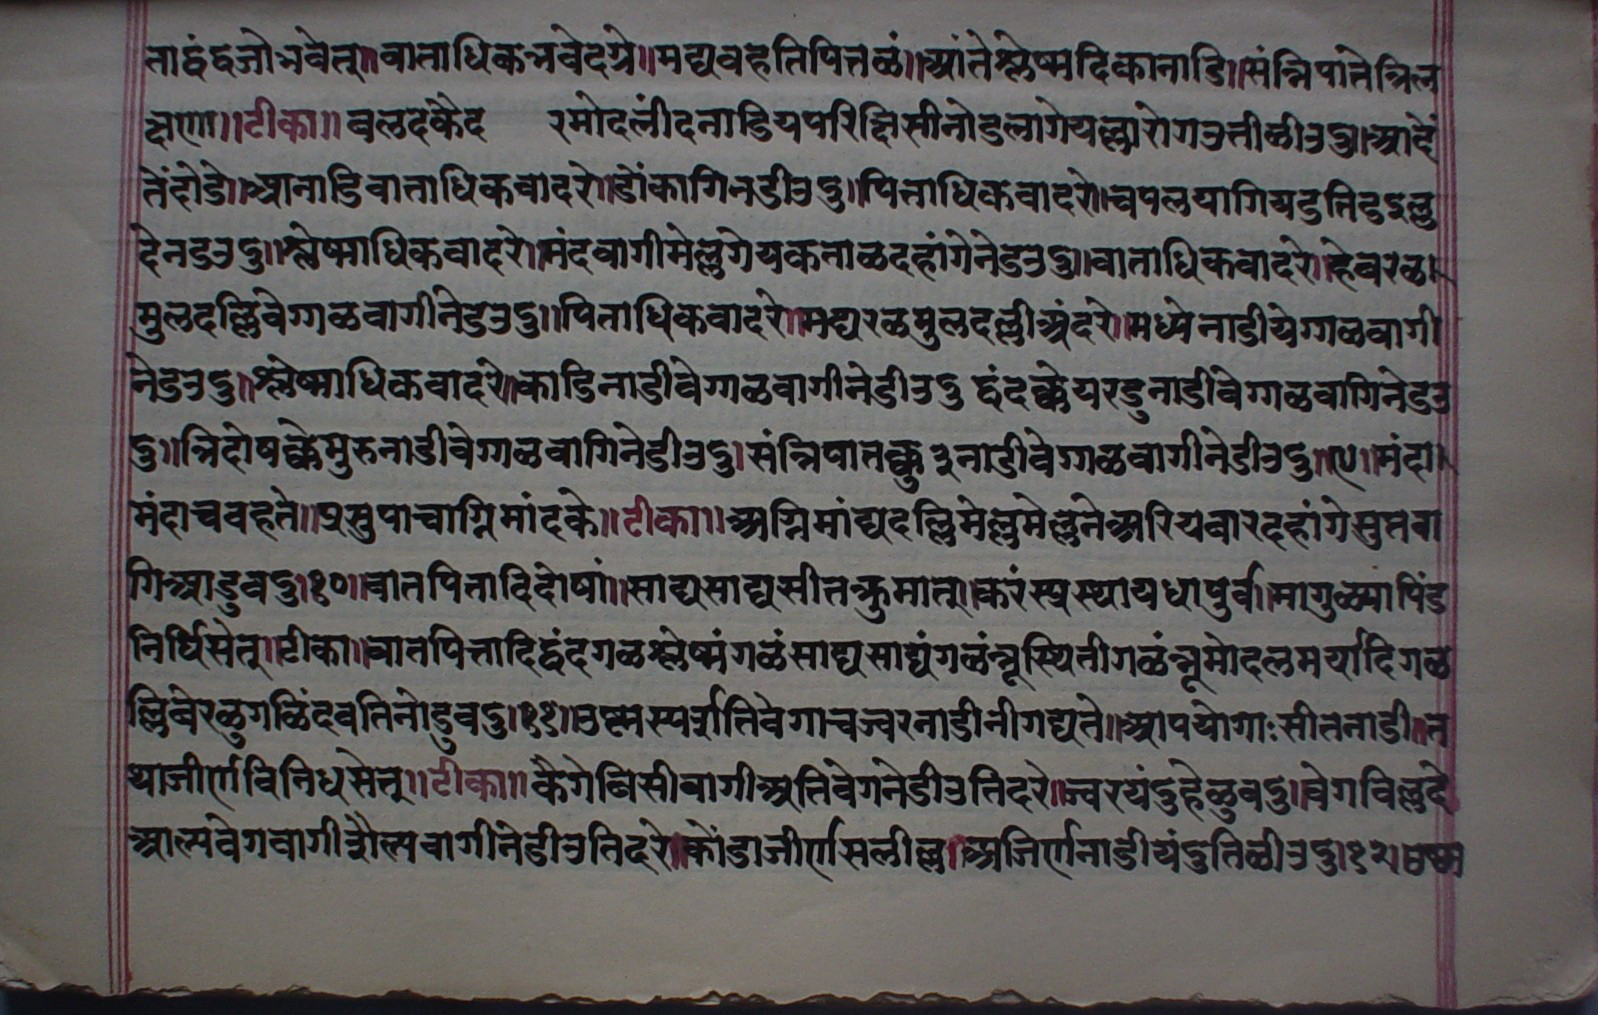 ताद्वंद्वजोभवेत्॥वाताधिकभवेदग्रे॥मद्यवहतिपित्तळं॥आंतेश्लेष्मदिकानाडि॥संन्निपातेत्रिल
क्षणा॥टीका॥बलदकैद रमोदलींदनाडियपरिक्षिसीनोडलागेयल्लारोगउत्तीळीउदु॥आदें
तेंदोडे॥आनाडिवाताधिकवादरे॥डोंकागिनडीउदु॥पित्ताधिकवादरे॥चपलयागियडतिडऽल्लु
देनडउदु॥श्लेष्माधिकवादरे॥मंदवागीमेल्लगेयकनाळदहांगेनेडउदु॥वाताधिकवादरे॥हेबरळ॥
मुलदल्लिवेग्गळवागीनेडउदु॥पिताधिकवादरे॥मद्यरळमुलदल्लीअंदरे॥मध्येनाडीयेग्गळवागी
नेडउदु॥श्लेष्माधिकवादरे॥काडिनाडीवेग्गळवागीनेडीउदु द्वंदक्केयरडुनाडीवेग्गळवागिनेडउ
दु॥त्रिदोषक्केमुरुनाडीवेग्गळवागिनेडीउदु।संन्निपातक्कु३नाडीवेग्गळवागीनेडीउदु॥९॥मंदा॥
मंदाचवहते॥प्रसुपाचाग्निमांदके॥टीका॥अग्निमांद्यदल्लिमेल्लमेल्लनेअरियबारदहांगेसुप्तवा
गिआडुवदु॥१०॥वातपितादिदोषां॥साद्यसाद्यसीतक्रुमात्॥करंस्पस्थायधापुर्वा॥मागुळ्यापिंड
निर्धिसेत्॥टीका॥वातपित्तादिद्वंदगळश्लेष्मंगळंसाद्यसाद्यंगळंन्नूस्थितीगळंन्नूमोदलमर्यादिगळ
ल्लिबेरळुगळिंदवतिनोडुवदु॥११॥उष्मस्पर्शातिवेगाचज्वरनाडीनीगद्यते॥आपयोगाःसीतनाडी॥त
थाजीर्णविनिधसेत्॥टीका॥कैगेबिसीवागीअतिवेगनेडीउतिदरे॥ज्वरयंदुहेळुवदु॥वेगविल्लदे
आल्पवेगवागीशैत्यवागीनेडीउतिदरे॥कोंडाजीर्णसलील्ल॥अजिर्णनाडीयंदुतिळीउदु॥१२॥उष्म